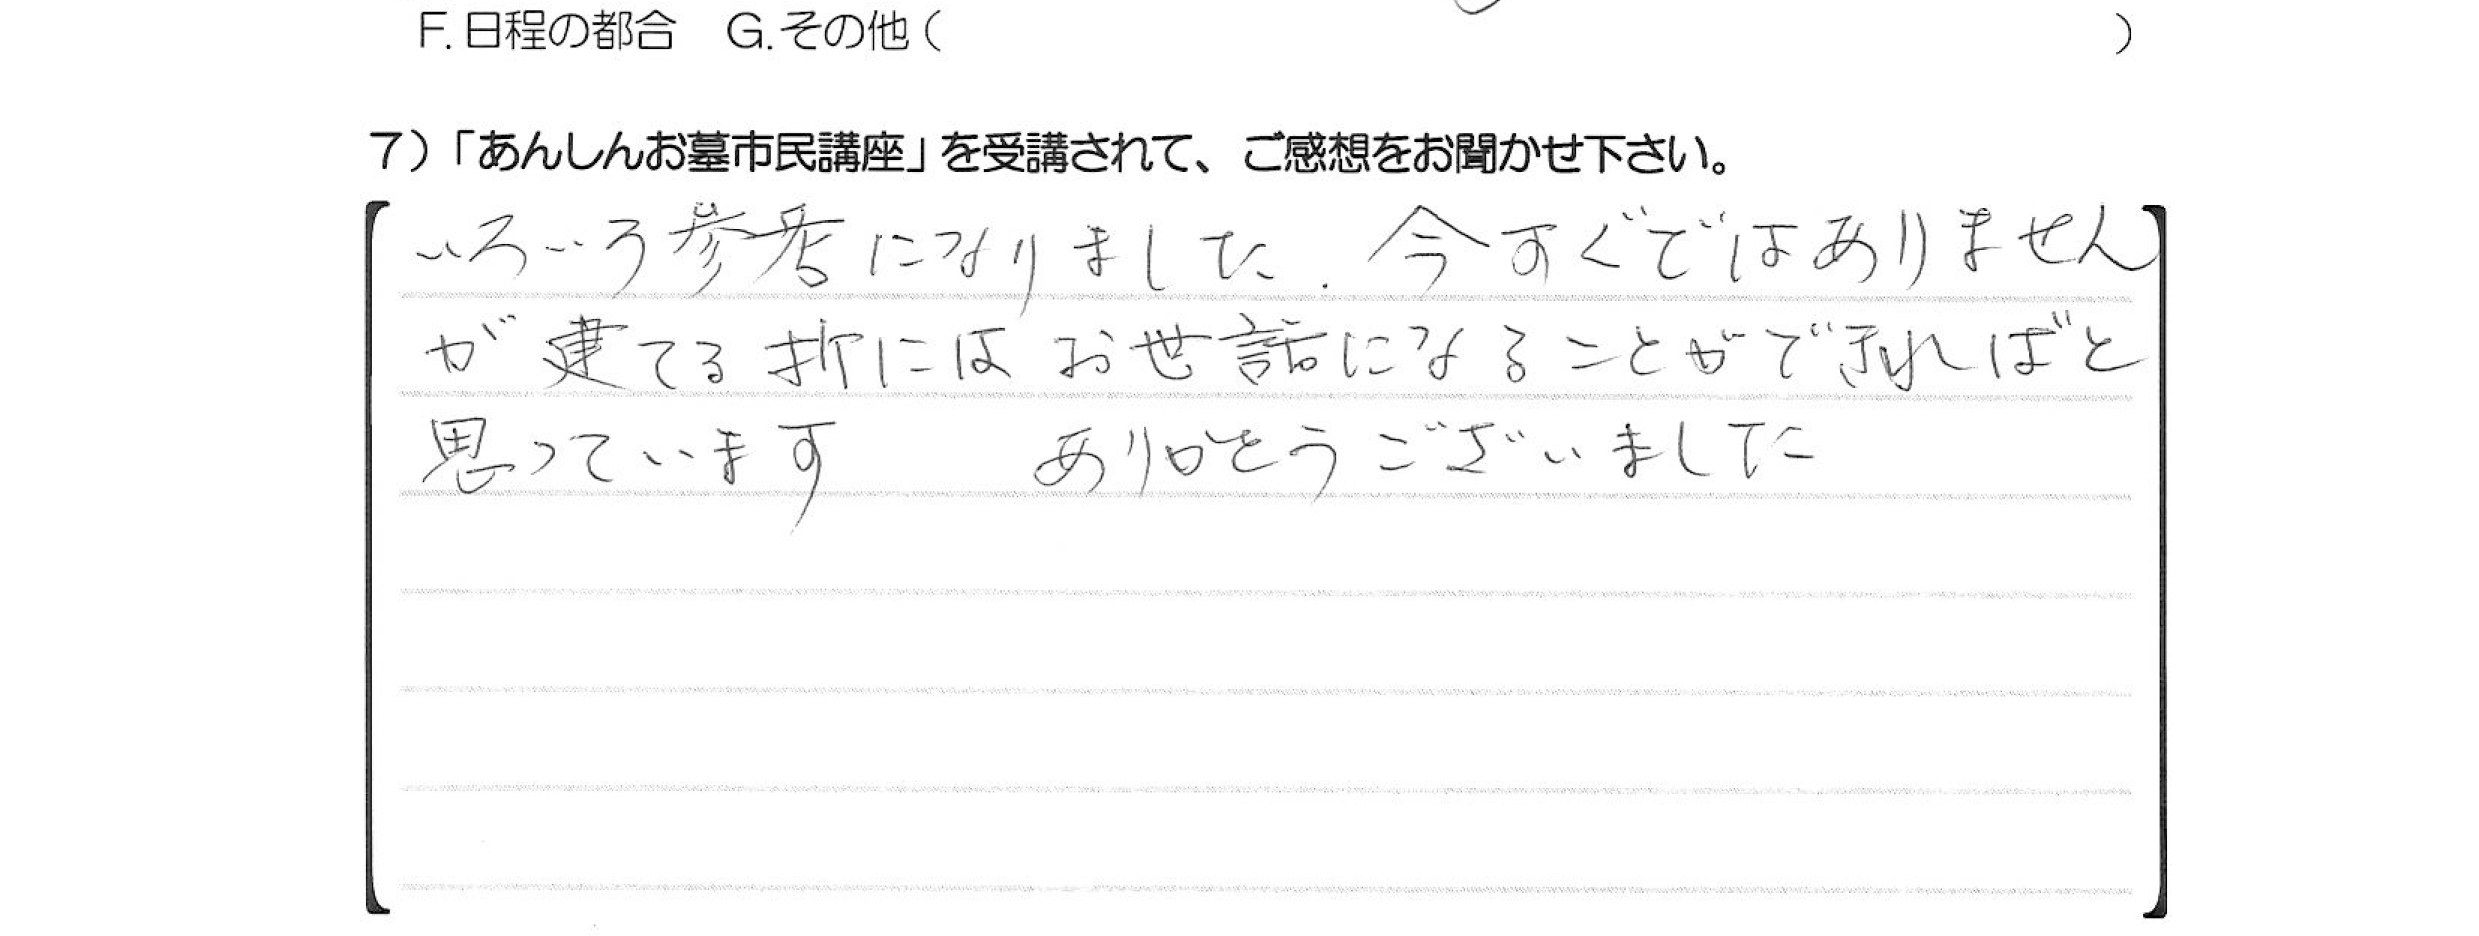 F.日程の都合　G.その他（　　　）
7）「あんしんお墓市民講座」を受講されて、ご感想をお聞かせ下さい。
いろいろ参考になりました. 今すぐではありません
が 建てる折には お世話になることができればと
思っています　　ありがとうございました